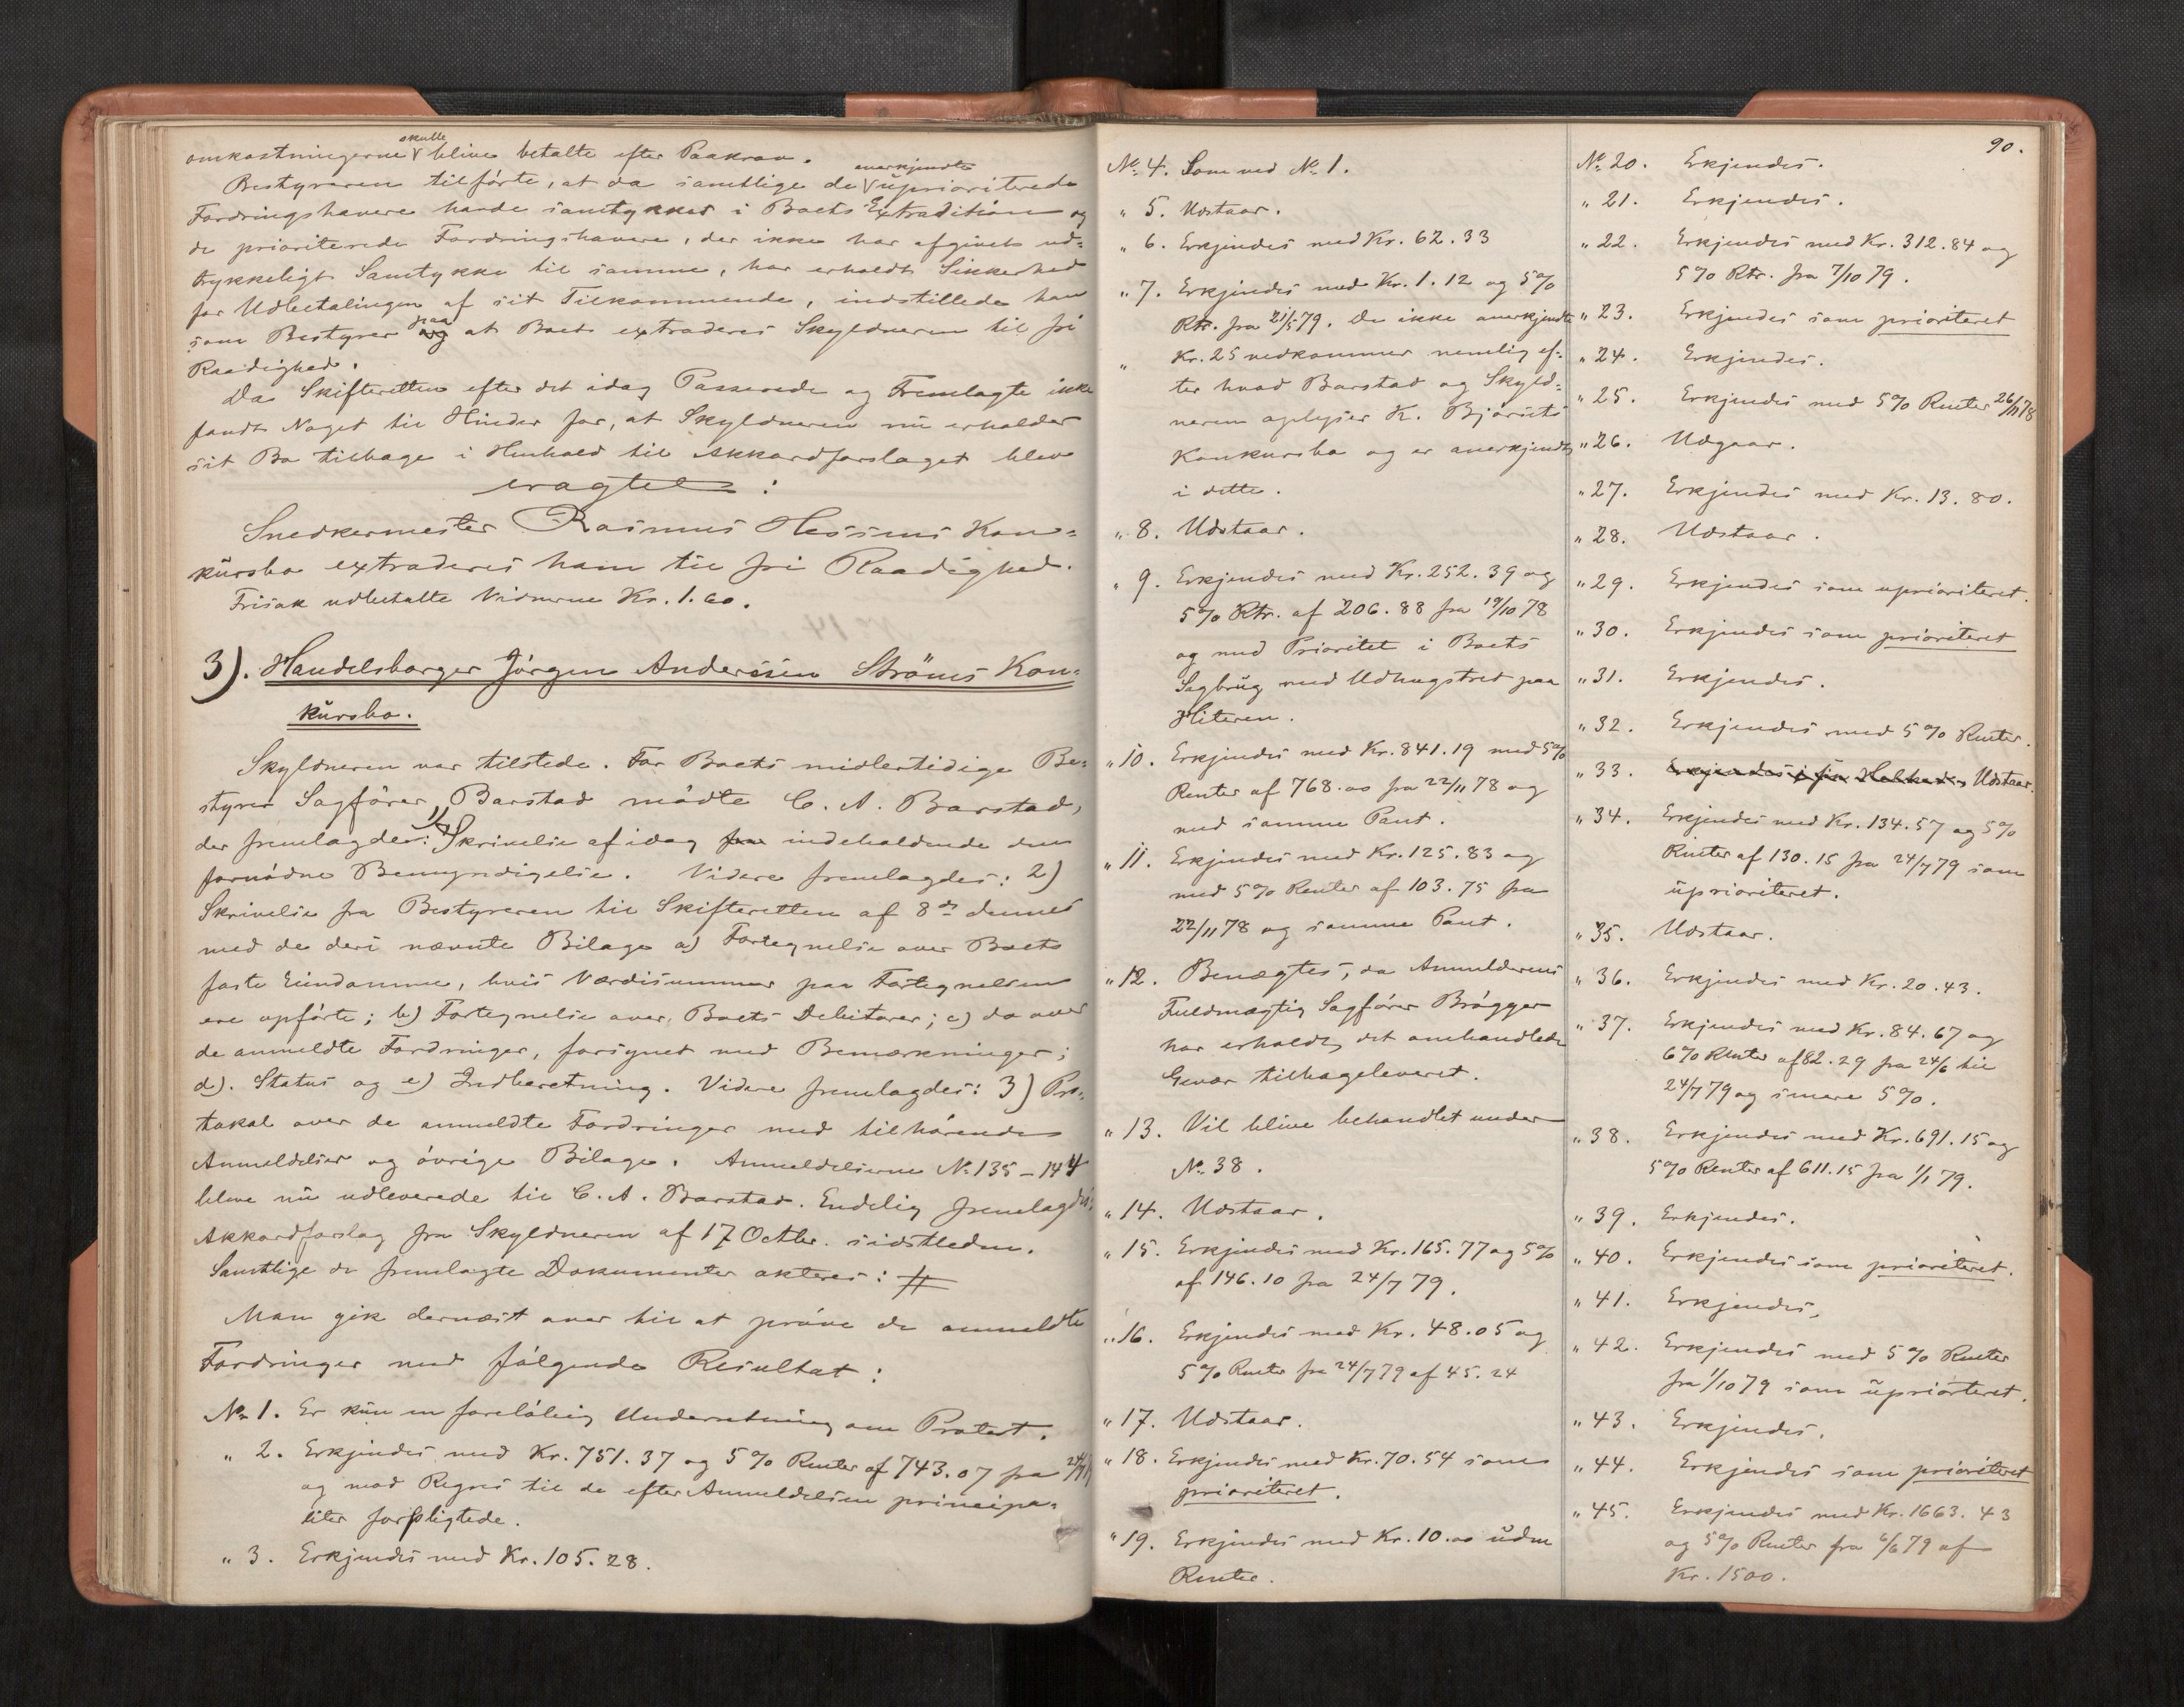 omkostningerne skulle blive betalte efter Paakrav.
Bestyreren tilførte, at da samtlige de anerkjendte uprioriterede
Fordringshavere havde samtykket i Boets Extradition og
de prioriterede Fordringshavere, der ikke har afgivet ud-
trykkeligt Samtykke til samme, har erholdt Sikkerhed
for Udbetalingen af sit Tilkommende, indstillede han
som Bestyrer paa at Boet extraderes Skyldneren til fri
Raadighed.
Da Skifteretten efter det idag Passerede og Fremlagte ikke
fandt Noget til Hinder for, at Skyldneren nu erholder
sit Bo tilbage i Henhold til Akkordforslaget blev
eragtet:
Snedkermester Rasmus Hessens Kon-
kursbo extraderes ham til fri Raadighed.
Frisak udbetalte Vidnerne Kr. 1.60.
3). Handelsborger Jørgen Andersen Strøms Kon-
kursbo.
Skyldneren var tilstede. For Boets midlertidige Be-
styrer Sagfører Barstad mødte C. A. Barstad,
der fremlagde: 1) Skrivelse af idag fra indeholdende den
fornødne Bemyndigelse. Videre fremlagdes: 2)
Skrivelse fra Bestyreren til Skifteretten af 8de dennes
med de deri nævnte Bilage a) Fortegnelse over Boets
faste Eiendomme, hvis Værdisummer paa Fortegnelsen
ere opførte; b) Fortegnelse over Boets Debitorer; c) do over
de anmeldte Fordringer, forsynet med Bemærkninger;
d). Status og e) Indberetning. Videre fremlagdes: 3) Pro-
tokol over de anmeldte Fordringer med tilhørende
Anmeldelser og øvrige Bilage. Anmeldelserne No. 135-144
bleve nu udleverede til C. A. Barstad. Endelig fremlagdes:
Akkordforslag fra Skyldneren af 17 Octbr. sidstleden.
Samtlige de fremlagte Dokumenter akteres: #
Man gik dernæst over til at prøve de anmeldte
Fordringer med følgende Resultat:
No 1. Er kun en foreløbig Underretning om Protest.
" 2. Erkjendes med Kr. 751.37 og 5% Renter af 743.07 fra
og mod Regres til de efter Anmeldelsen principa-
liter forpligtede.
" 3. Erkjendes med Kr. 105.28.
90.
No. 4. Som ved No. 1.
" 5. Udstaar.
" 6. Erkjendes med Kr. 62.33
" 7. Erkjendes med Kr. 1.12 og 5%
Rtr. fra 21/5 79. De ikke anerkjendte
" Kr. 25 vedkommer nemlig ef-
ter hvad Barstad og Skyld-
neren oplyser K. Bjørsets
Konkursbo og er anerkjendt
i dette.
" 8. Udstaar.
" 9. Erkjendes med Kr. 252.39 og
5% Rtr. af 206.88 fra 19/10 78
og med Prioritet i Boets
Sagbrug med Udhugstret paa
Hiteren.
" 10. Erkjendes med Kr. 841.19 med 5%
Renter af 768.00 fra 22/11 78 og
med samme Pant.
" 11. Erkjendes med Kr. 125.83 og
med 5% Renter af 103.75 fra
22/11 78 og samme Pant.
" 12. Benægtes, da Anmelderens
Fuldmægtig Sagfører Brøgger
har erholdt det omhandlede
Gevær tilbageleveret.
" 13. Vil blive behandlet under
No. 38.
" 14. Udstaar.
" 15. Erkjendes med Kr. 165.77 og 5%
af 146.10 fra 24/7 79.
" 16. Erkjendes med Kr. 48.05 og
5% Renter fra 24/7 79 af 45.24
" 17. Udstaar.
" 18. Erkjendes med Kr. 70.54 som
prioriteret.
" 19. Erkjendes med Kr. 10.00 uden
Renter.
No. 20. Erkjendes.
" 21. Erkjendes.
" 22. Erkjendes med Kr. 312.84 og
5% Rtr. fra 7/10 79.
" 23. Erkjendes som prioriteret
" 24. Erkjendes.
" 25. Erkjendes med 5% Renter 26/11 78
" 26. Udgaar.
" 27. Erkjendes med Kr. 13.80.
" 28. Udstaar.
" 29. Erkjendes som uprioriteret.
" 30. Erkjendes som prioriteret
" 31. Erkjendes.
" 32. Erkjendes med 5% Renter.
" 33. Erkjendes i sin Helhed. Udstaar.
" 34. Erkjendes med Kr. 134.57 og 5%
Renter af 130.15 fra 24/7 79 som
uprioriteret.
" 35. Udstaar.
" 36. Erkjendes med Kr. 20.43.
" 37. Erkjendes med Kr. 84.67 og
6% Renter af 82.29 fra 24/6 til
24/7 79 og senere 5%.
" 38. Erkjendes med Kr. 691.15 og
5% Renter af 611.15 fra 1/1 79.
" 39. Erkjendes.
" 40. Erkjendes som prioriteret.
" 41. Erkjendes,
" 42. Erkjendes med 5% Renter
fra 1/10 79 som uprioriteret.
" 43. Erkjendes.
" 44. Erkjendes som prioriteret
" 45. Erkjendes med Kr. 1663.43
og 5% Renter fra 6/6 79 af
Kr. 1500.